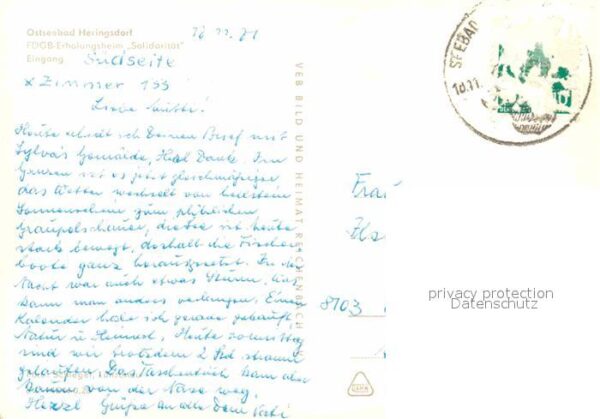 Ostseebad Heringsdorf
FDGB-Erholungsheim „Solidarität"
Eingang Südseite
x Zimmer 155
10.11.71
Liebe Mutti!
Heute erhielt ich Deinen Brief mit
Sylvas Gemälde, Hab Dank. Im
Ganzen ist es jetzt gleichmässig
das Wetter wechselt von hellstem
Sonnenschein zum plötzlichen
Graupelschauer, die See ist heute
stark bewegt, deshalb die Fischer
boote ganz herausgesetzt. In der
Nacht war auch etwas Sturm, was
kann man anders verlangen. Einen
Kalender habe ich genau gekauft,
Natur u Heimat. Heute vormittag
sind wir trotzdem 2 Std stramm
gelaufen. Das Taschentuch kam
kaum von der Nase weg.
Herzl Grüße an alle Dein
VEB BILD UND HEIMAT REICHENBACH
SEEBAD
10.11.
Frau
8103
privacy protection
Datenschutz